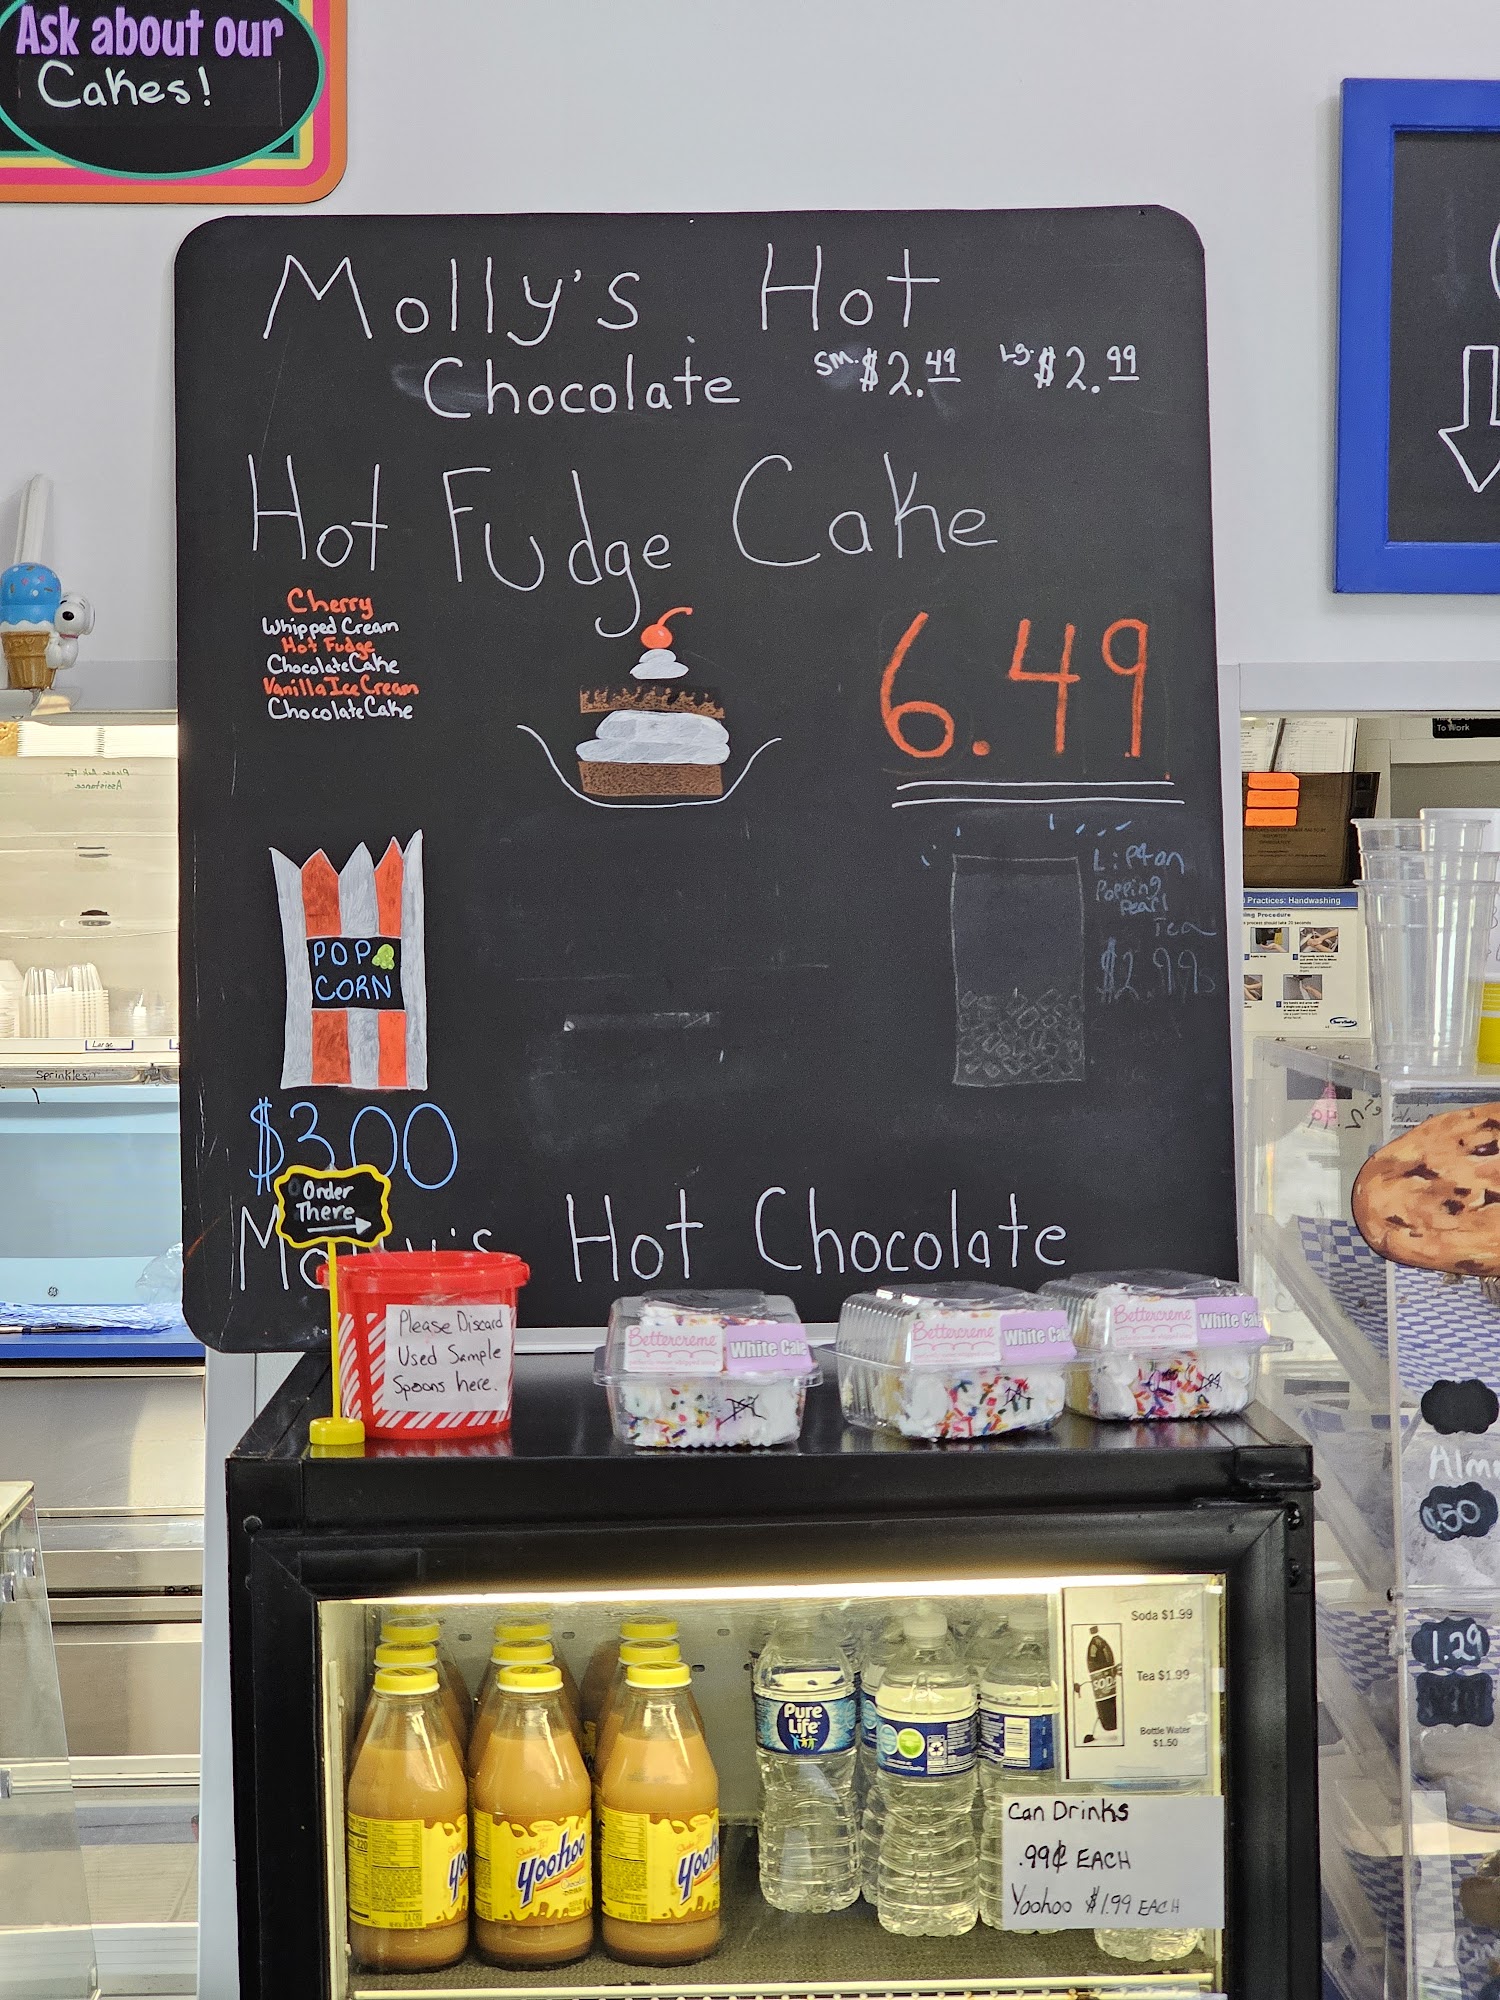 Ask about our
Cakes!
Molly's Hot
Chocolate
Sm. $2.49 Lg. $2.99
Hot Fudge Cake
Cherry
Whipped Cream
Hot Fudge
Chocolate Cake
Vanilla Ice Cream
Chocolate Cake
6.49
POP
CORN
$3.00
Lipton
Popping
Pearl
Tea
$2.99
Please Ask For
Assistance
Large
Sprinkles
To Work
Practices: Handwashing
Procedure
Order
There
Hot Chocolate
Please Discard
Used Sample
Spoons here.
Bettercreme
White Cak
Bettercreme
White Cak
Bettercreme
White Cak
Soda $1.99
SODA
Tea $1.99
Bottle Water
$1.50
Can Drinks
.99¢ EACH
Yoohoo $1.99 EACH
Yoohoo
Pure
Life
Alm
.50
1.29